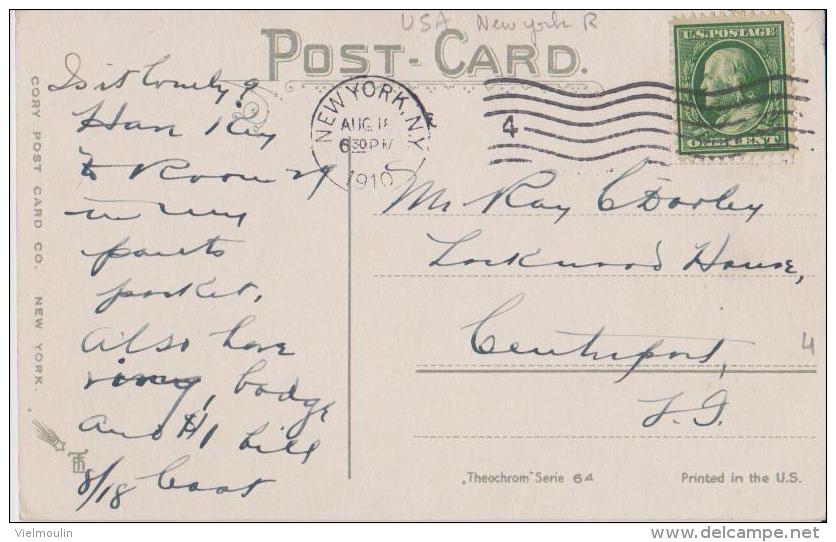 USA New York R
POST-CARD.
U.S.POSTAGE
ONE CENT
NEW YORK, N.Y.
AUG 18
6 30 PM
1910
4
Is it lonely?
Have Key
to Room 29
in my
pants
pocket.
Also have
ring, badge
and $1 bill
8/18
Mr Ray C Dorley
Lockwood House,
Centerport,
L.I.
4
CORY POST CARD CO. NEW YORK.
„Theochrom" Serie 64
Printed in the U.S.
Vielmoulin
delcampe.net